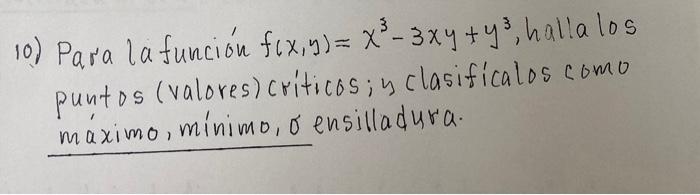 10) Para la función f(x,y)= x³-3xy+y³, halla los
puntos (valores) críticos; y clasifícalos como
máximo, mínimo, ó ensilladura.